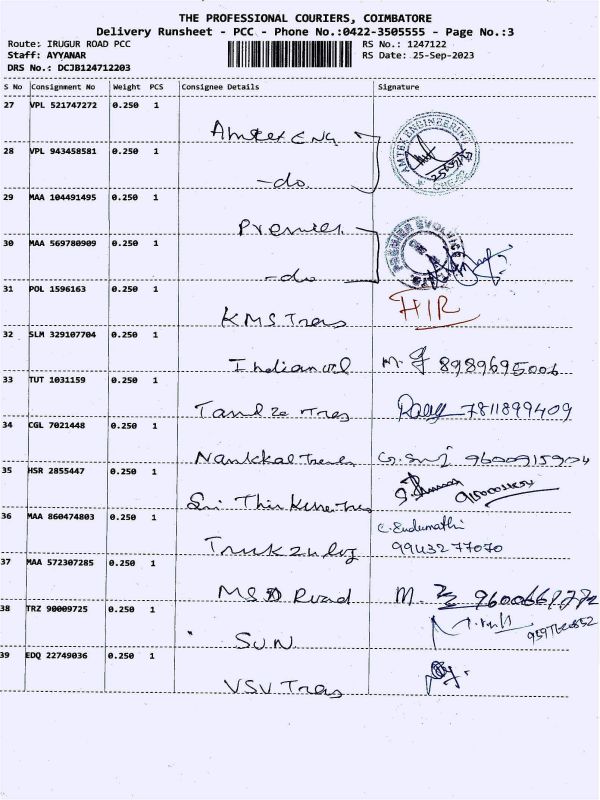 THE PROFESSIONAL COURIERS, COIMBATORE
Delivery Runsheet - PCC - Phone No.:0422-3505555 - Page No.:3
Route: IRUGUR ROAD PCC RS No.: 1247122
Staff: AYYANAR RS Date: 25-Sep-2023
DRS No.: DCJB124712203
S No Consignment No Weight PCS Consignee Details Signature
27 VPL 521747272 0.250 1
Amtex ENG AMTEX ENGINEERING
28 VPL 943458581 0.250 1
-do.
29 MAA 104491495 0.250 1
Premier PREMIER EVOLVICS
30 MAA 569780909 0.250 1
-do
31 POL 1596163 0.250 1 HIR
KMS Tres
32 SLM 329107704 0.250 1
Indian oil M. 8989695006
33 TUT 1031159 0.250 1
Tamil Tres 7811899409
34 CGL 7021448 0.250 1
Namkkal 9600915904
35 HSR 2855447 0.250 1
Sri
36 MAA 860474803 0.250 1 C. Indumathi
9943277070
37 MAA 572307285 0.250 1
MSD Road M. 
38 TRZ 90009725 0.250 1
S.U.N.
39 EDQ 22749036 0.250 1
VSV Tres